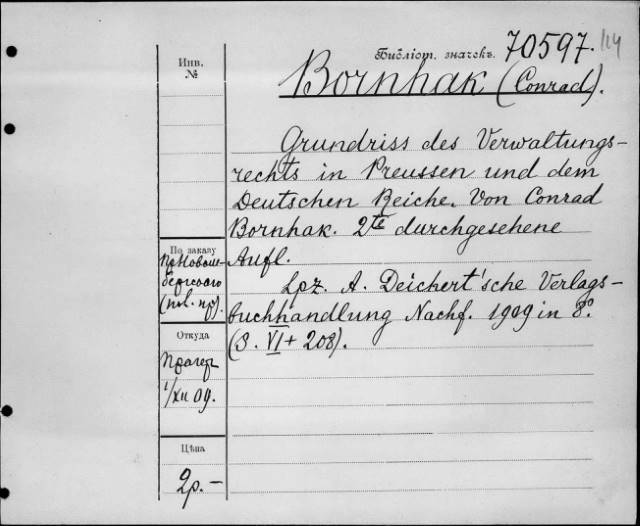 Библіот. значекъ. 70597. 114
Инв.
№
Bornhak (Conrad).
Grundriss des Verwaltungs-
rechts in Preussen und dem
Deutschen Reiche. Von Conrad
Bornhak. 2te durchgesehene
Aufl.
Lpz. A. Deichert'sche Verlags-
buchhandlung Nachf. 1909 in 8º
(S. VI + 208).
По заказу
Откуда
Прагер
1/XII 09.
Цѣна
2р.-